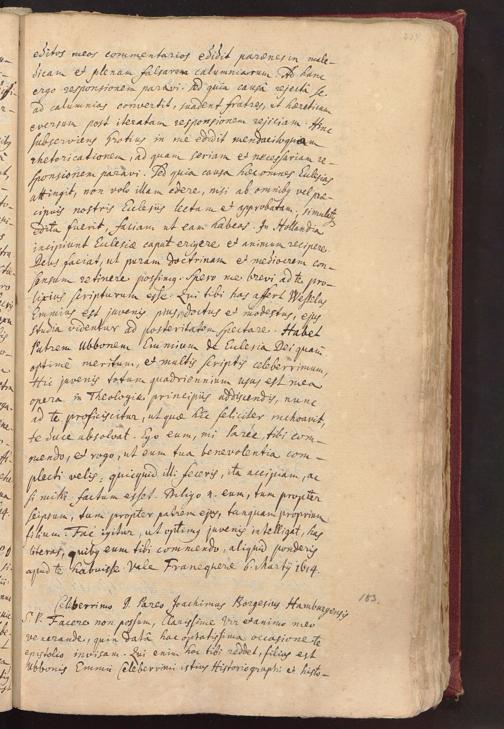 editos meos commentarios edidit parænesin male-
dicam et plenam falsarum calumniarum. Ad hanc
ergo responsionem paravi. Sed quia causâ rejectâ se
ad calumnias convertit, suadent fratres, ut hæresium
eversum post iteratam responsionem rejiciam. Hinc
subserviens Grotius in me edidit mendaciloquam
rhetoricationem, ad quam seriam et necessariam re-
sponsionem paravi. Sed quia causa hæc omnes Ecclesias
attingit, non volo illam edere, nisi ab omnibq vel præ-
cipuis nostris Ecclesijs lectam et approbatam, simulatq
edita fuerit, faciam ut eam habeas. In Hollandia
incipiunt Ecclesiæ caput erigere et animum recipere.
Deus faciat, ut puram doctrinam et mediocrem con-
sensum retinere possimq. Spero me brevi ad te pro-
lixius scripturum esse. Qui tibi has affert Wesselus
Emmius est juvenis pius, doctus et modestus, ejus
studia videntur ad posteritatem spectare. Habet
Patrem Ubbonem Emmium de Ecclesia Dei quam
optimè meritum, et multis scriptis celeberrimum,
Hic juvenis totum quadriennium usus est mea
opera in Theologiæ principijs addiscendis, nunc
ad te proficiscitur, ut quæ hîc feliciter inchoavit,
te duce absolvat. Ego eum, mi Paree, tibi com-
mendo, et rogo, ut eum tua benevolentia com-
plecti velis; quicquid illi feceris, ita accipiam, ac
si mihi factum esset. Diligo n. eum, tum propter
seipsum, tum propter patrem ejus, tanquam proprium
filium. Fac igitur, ut optimq juvenis intelligat, has
literas, quibq eum tibi commendo, aliquid ponderis
apud te habuisse. Vale Franequeræ 6. Martij 1614.
183.
Celeberrimo D. Pareo Joachimus Borgesius Hamburgensis
S. P. Facere non possum, Clarissime Vir et animo meo
venerande, quin datâ hac optatissima occasione te
epistolio invisam. Qui enim has tibi reddet, filius est
Ubbonis Emmii Celeberrimi istius Historiographi et histo-